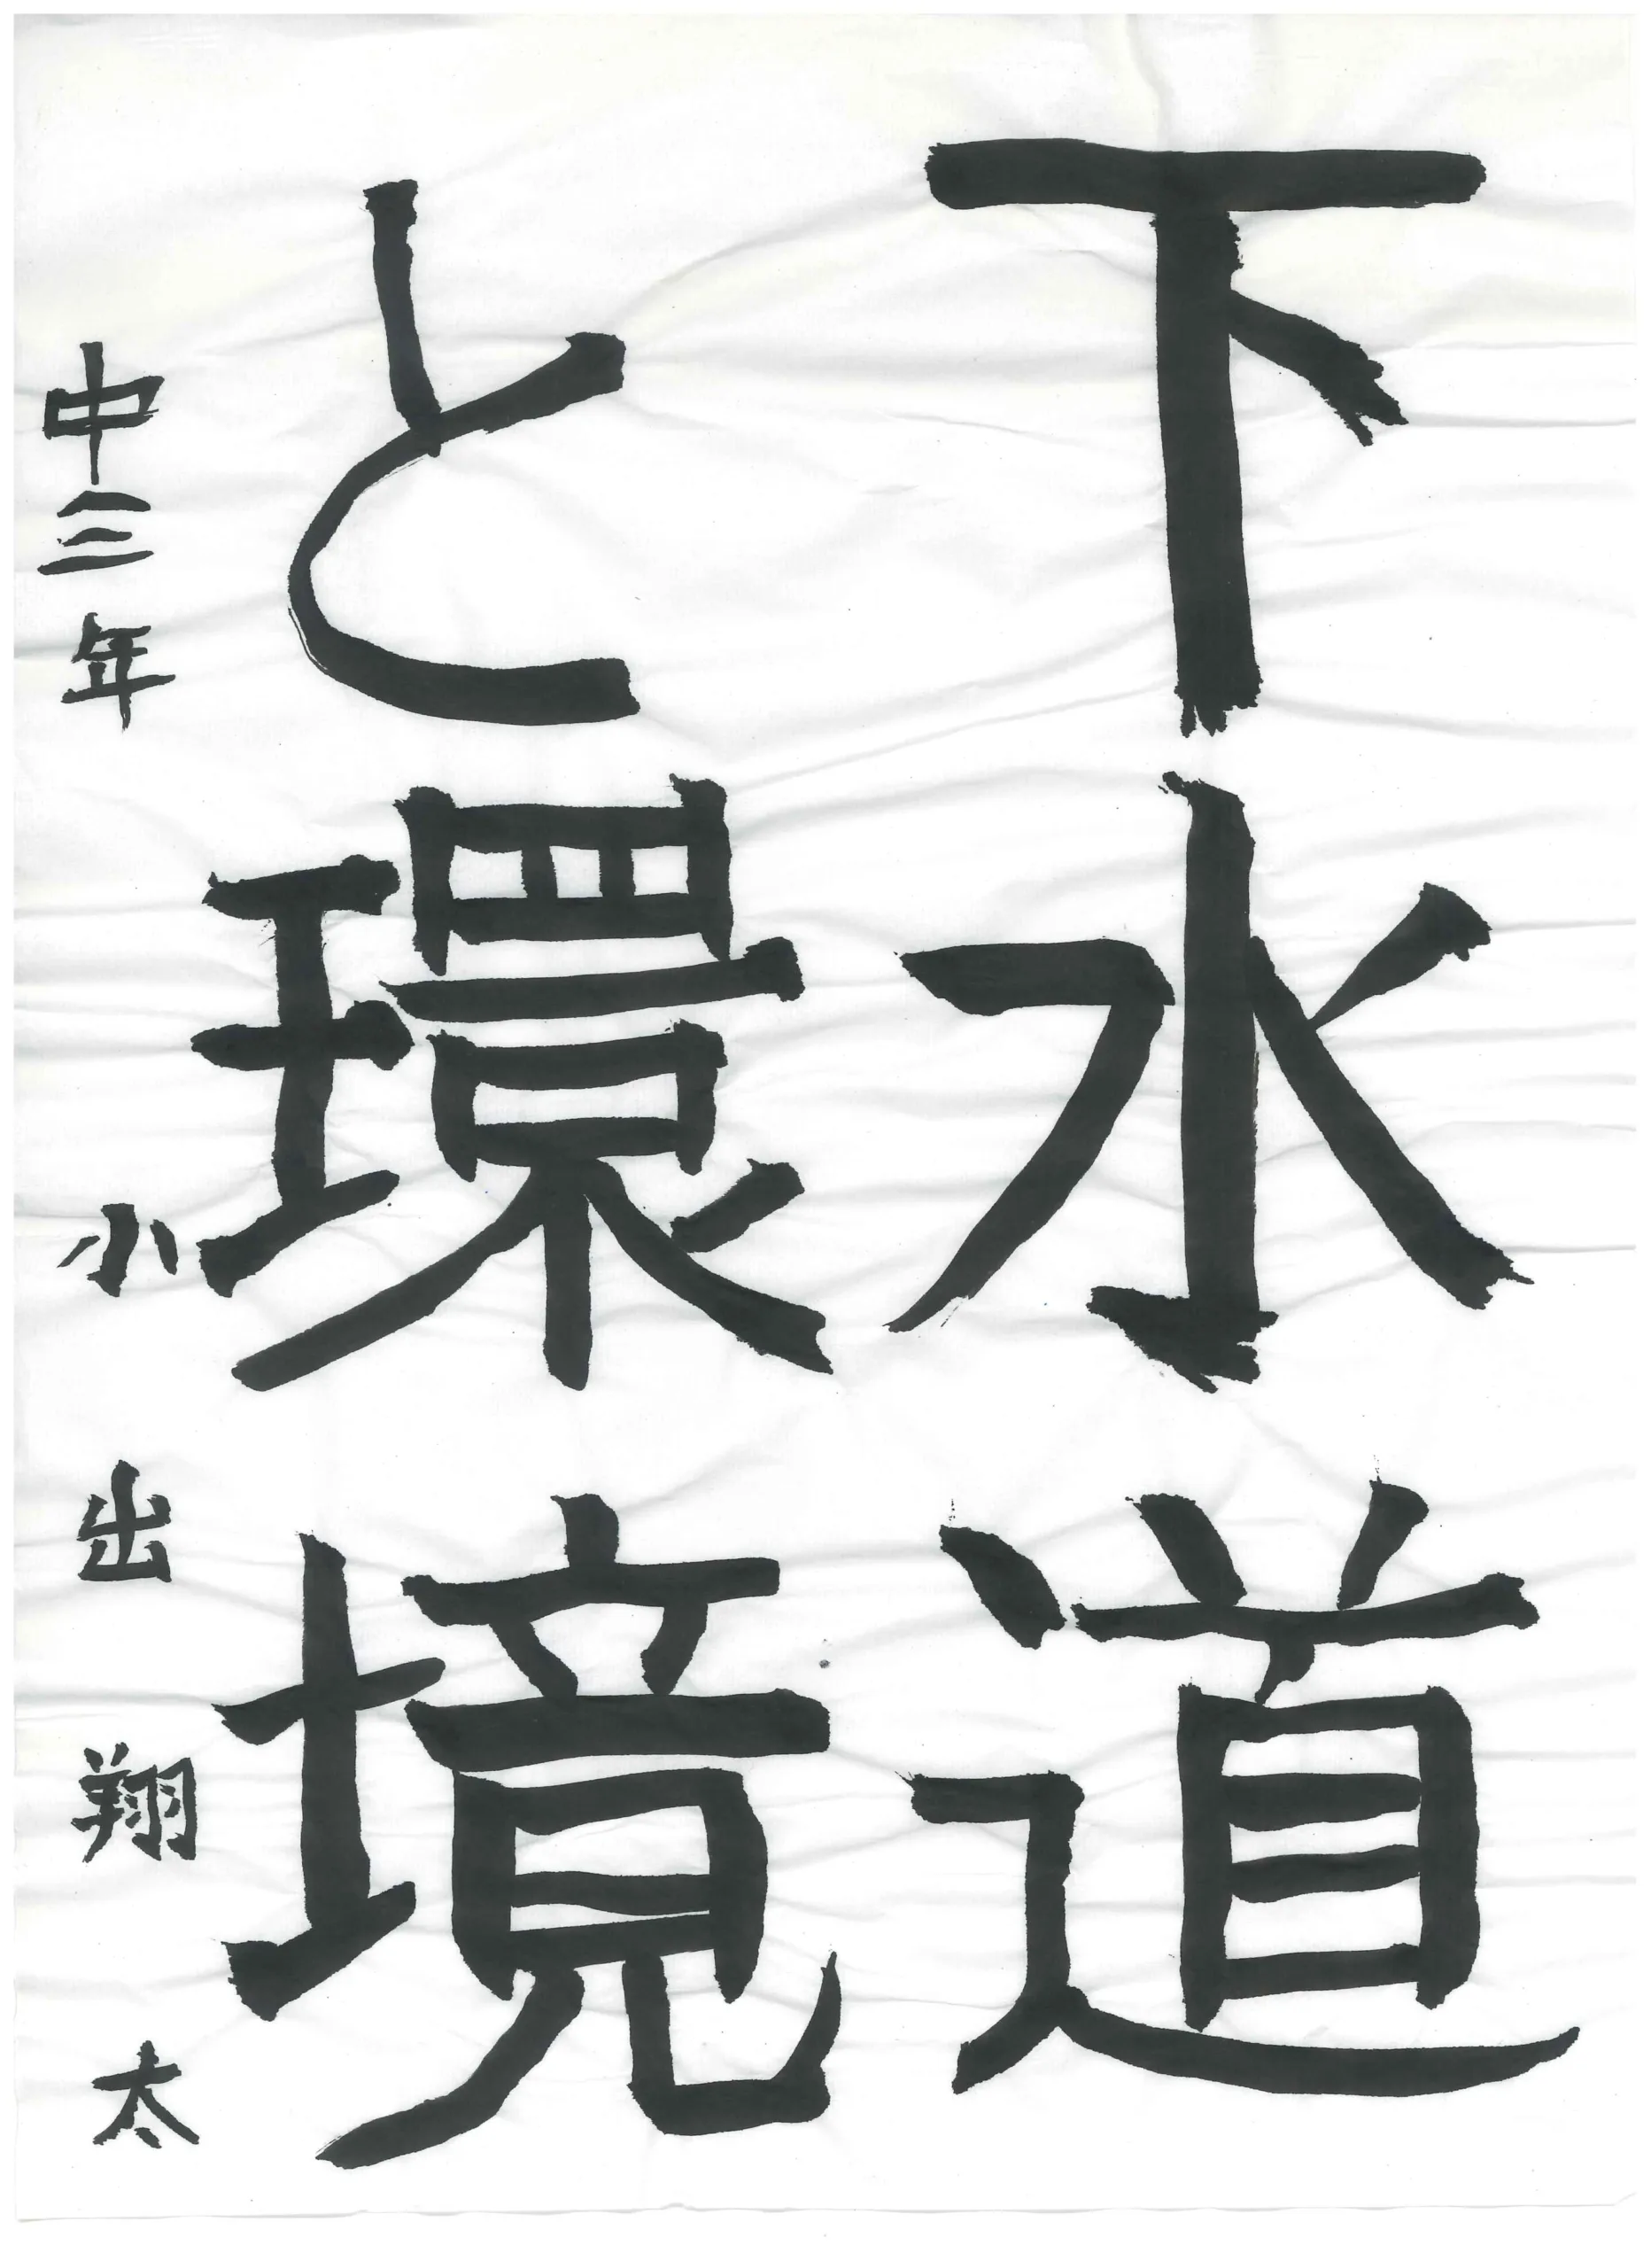 下水道
と環境
中三年 小出翔太